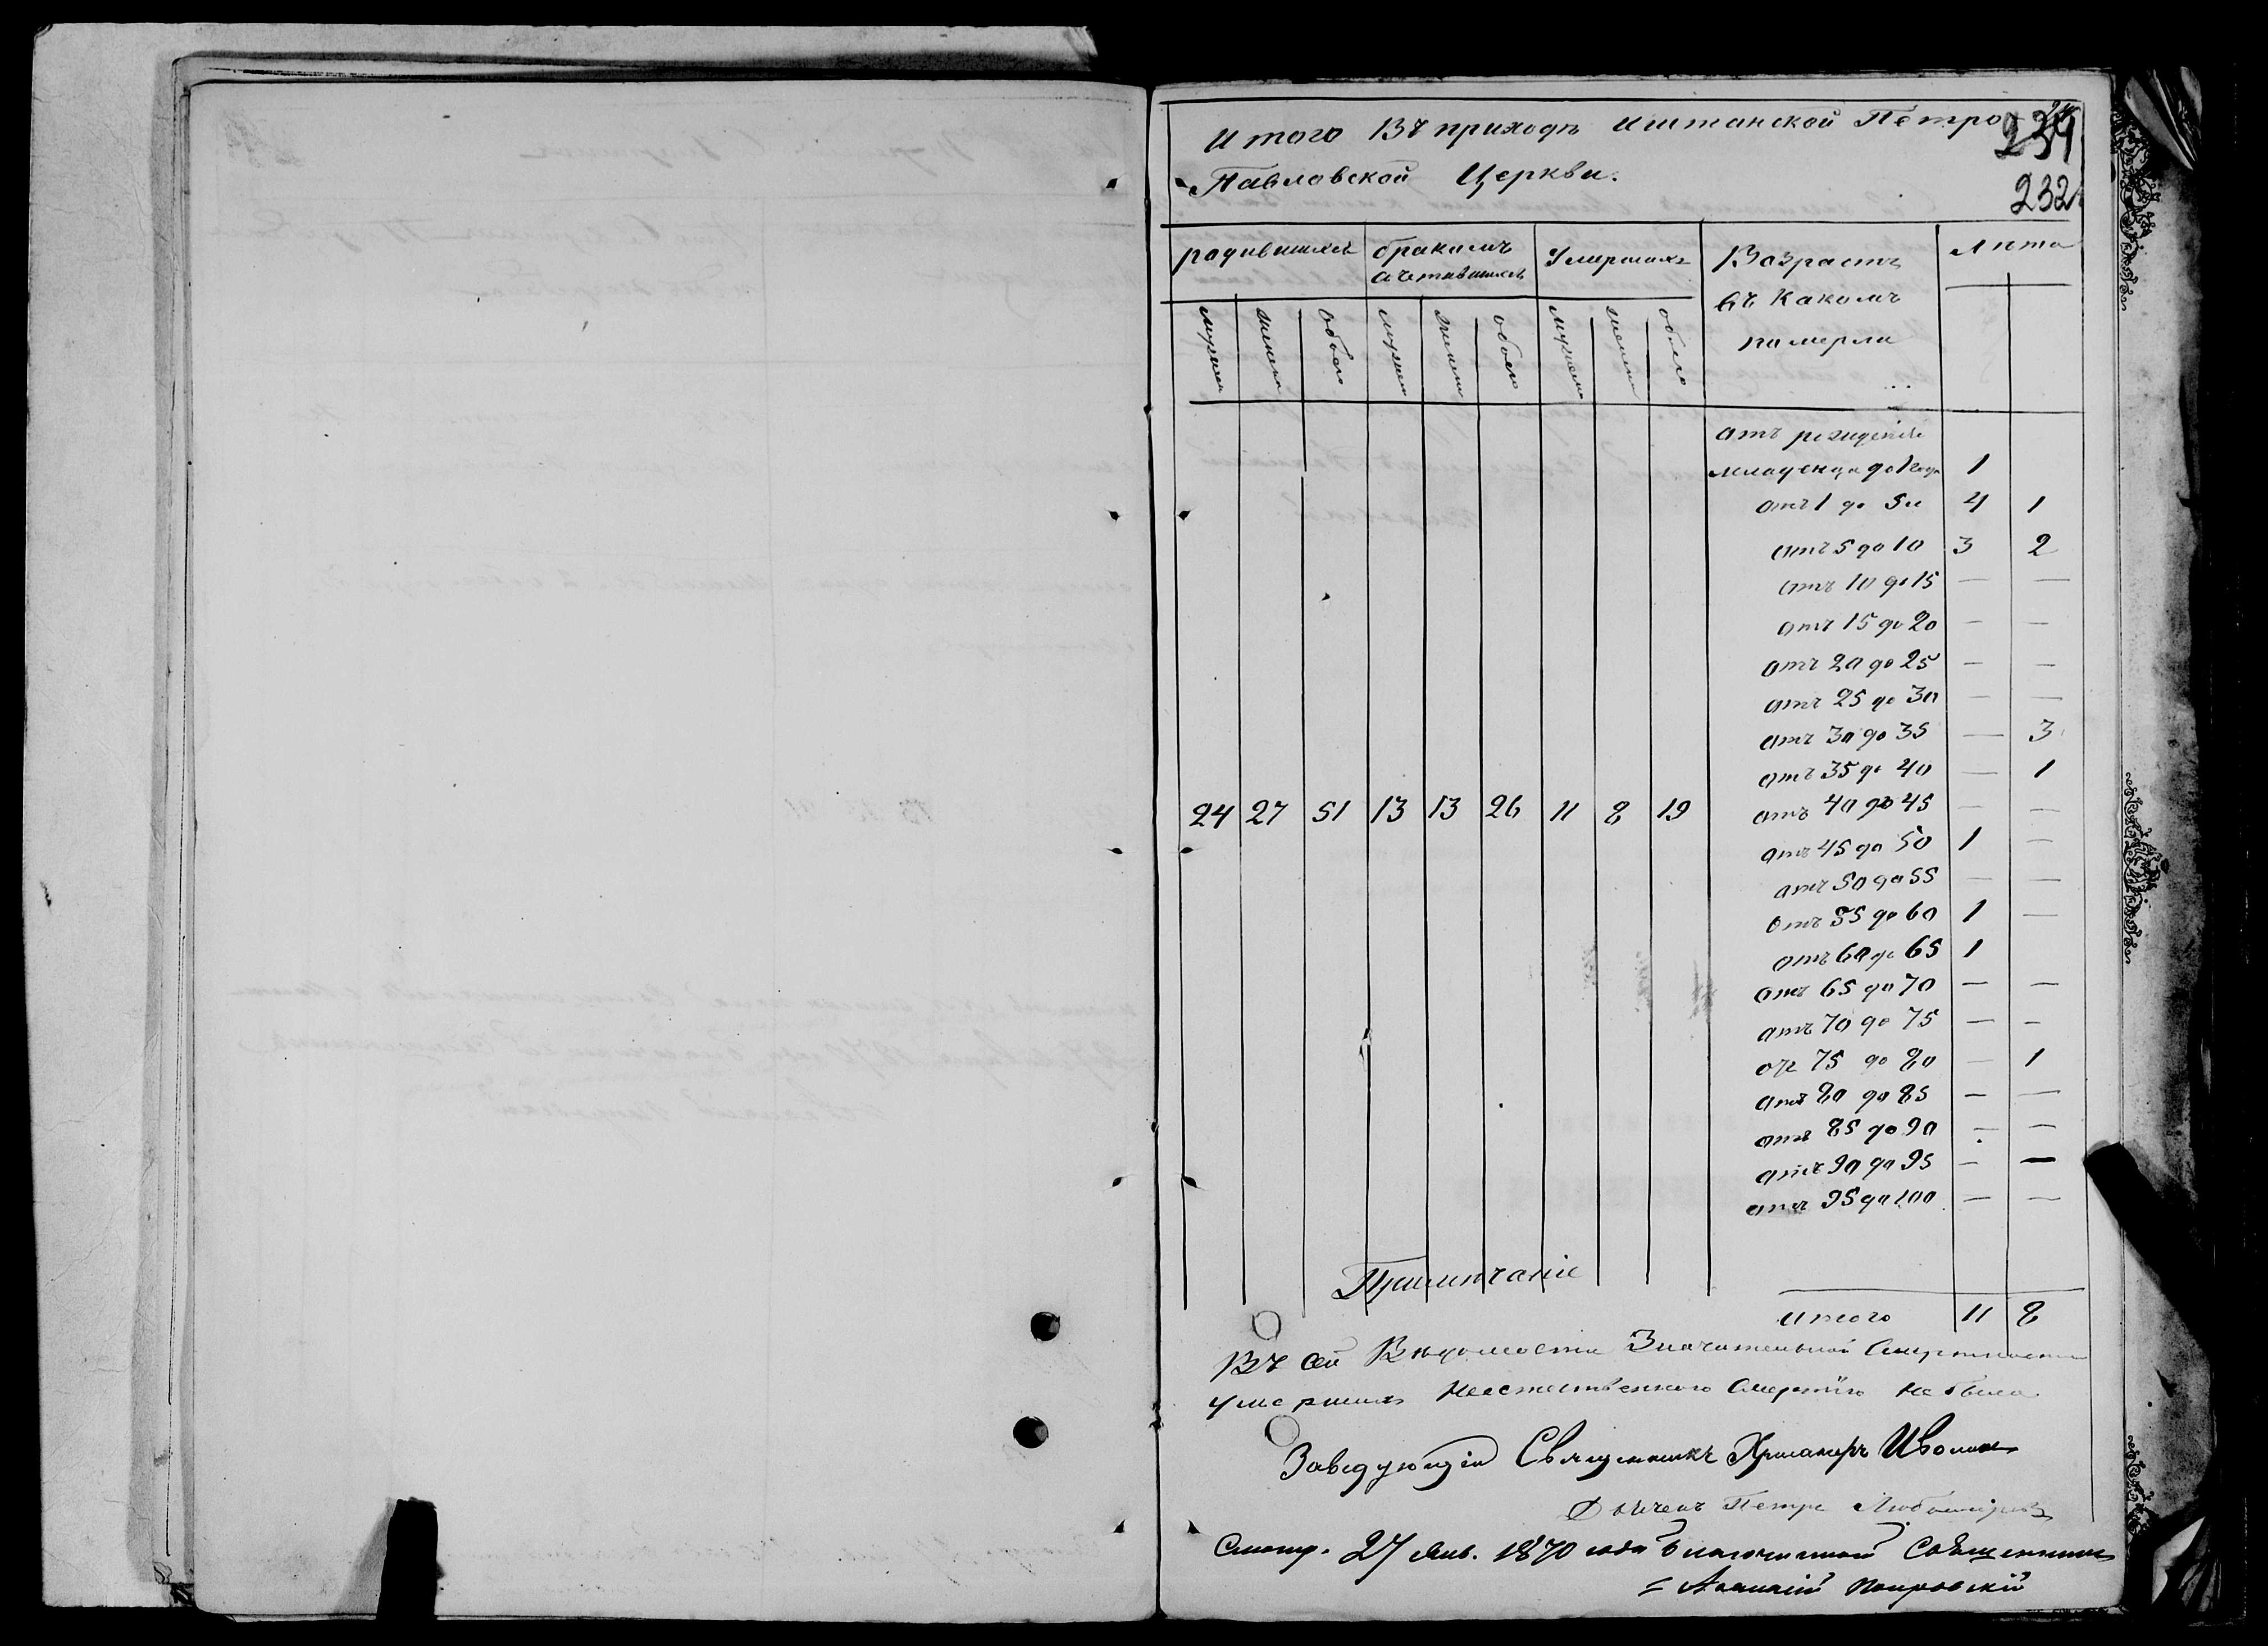 Итого Въ приходѣ Иштанской Петро-
234
Павловской Церкви.
232
родившихся
бракомъ
сочетавшихся
Умершихъ
Возрастъ
въ Какомъ
померли
Лѣта
мужеск
женск
обоего
мужеск
женск
обоего
мужеск
женск
обоего
отъ рожденія
младенца до 1 года 1
отъ 1 до 5 4 1
отъ 5 до 10 3 2
отъ 10 до 15 — —
отъ 15 до 20 — —
отъ 20 до 25 — —
отъ 25 до 30 — —
отъ 30 до 35 — 3
отъ 35 до 40 — 1
24 27 51 13 13 26 11 8 19 отъ 40 до 45 — —
отъ 45 до 50 1 —
отъ 50 до 55 — —
отъ 55 до 60 1 —
отъ 60 до 65 1
отъ 65 до 70 — —
отъ 70 до 75 — —
отъ 75 до 80 — 1
отъ 80 до 85 — —
отъ 85 до 90 — —
отъ 90 до 95 — —
отъ 95 до 100 — —
Примѣчаніе
итого 11 8
Въ сей Вѣдомости Значительной Смертности
умершихъ Неестественною Смертію не было
Завѣдующій Священникъ Іоаннъ
Петръ Любомировъ
Смотр. 27 Янв. 1870 года Благочинный Священникъ
Аѳанасій Покровскій